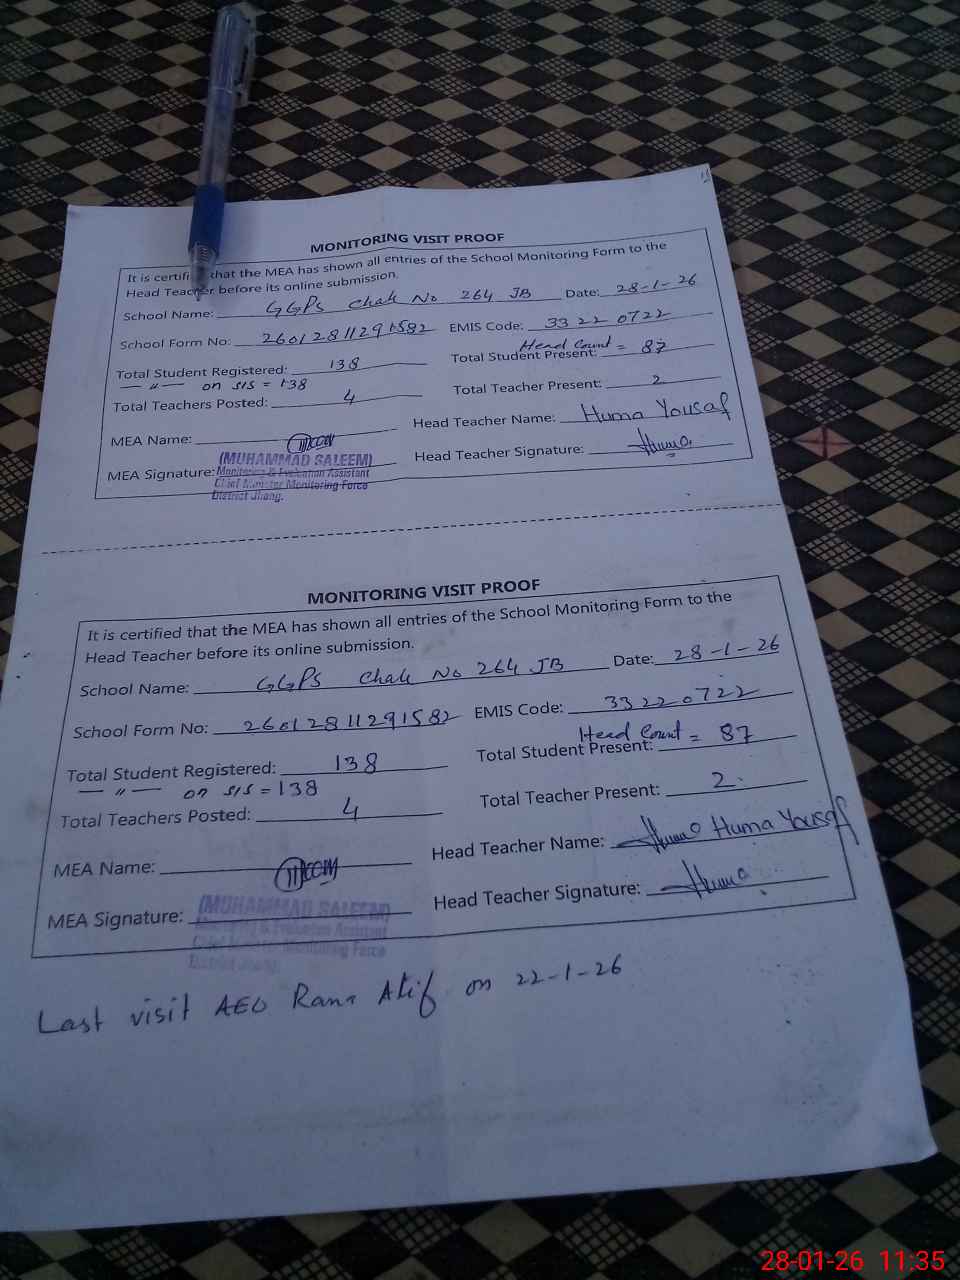 MONITORING VISIT PROOF
It is certified that the MEA has shown all entries of the School Monitoring Form to the
Head Teacher before its online submission.
School Name: GGPS Chak No 264 JB Date: 28-1-26
School Form No: 26012811291582 EMIS Code: 33220722
Head Count = 87
Total Student Registered: 138 Total Student Present:
— 〃 — on SIS = 138
Total Teachers Posted: 4 Total Teacher Present: 2
MEA Name: Head Teacher Name: Huma Yousaf
MEA Signature: Head Teacher Signature: Huma
(MUHAMMAD SALEEM)
Monitoring & Evaluation Assistant
Chief Minister Monitoring Force
District Jhang.
MONITORING VISIT PROOF
It is certified that the MEA has shown all entries of the School Monitoring Form to the
Head Teacher before its online submission.
School Name: GGPS Chak No 264 JB Date: 28-1-26
School Form No: 26012811291582 EMIS Code: 33220722
Head Count = 87
Total Student Registered: 138 Total Student Present:
— 〃 — on SIS = 138
Total Teachers Posted: 4 Total Teacher Present: 2
MEA Name: Head Teacher Name: Huma Huma Yousaf
MEA Signature: Head Teacher Signature: Huma
(MUHAMMAD SALEEM)
Monitoring & Evaluation Assistant
Chief Minister Monitoring Force
District Jhang.
Last visit AEO Rana Atif on 22-1-26
28-01-26 11:35